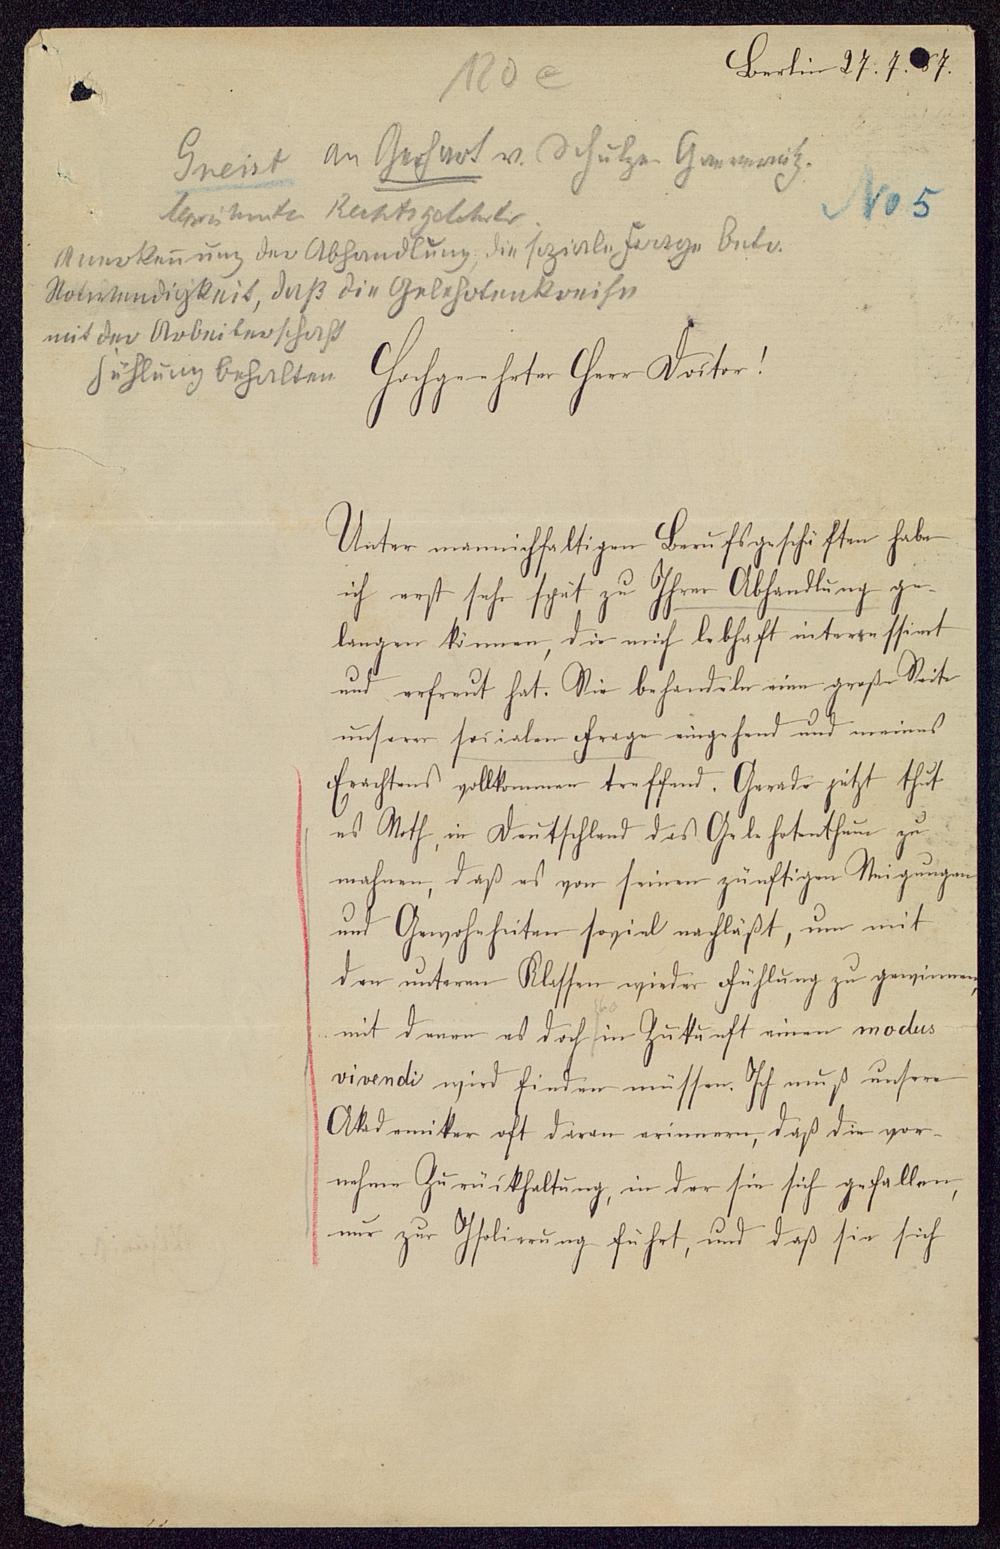 120 e
Berlin 27. 7. 87.
Gneist an Gerhart v. Schulze Gaevernitz.
No 5
berühmter Rechtsgelehrter.
Anerkennung der Abhandlung, die soziale Frage betr.
Notwendigkeit, daß die Gelehrtenkreise
mit der Arbeiterschaft
Fühlung behalten
Hochgeehrter Herr Doctor!
Unter mannichfaltigen Berufsgeschäften habe
ich erst sehr spät zu Ihrer Abhandlung ge-
langen können, die mich lebhaft interessirt
und erfreut hat. Sie behandeln eine große Seite
unserer socialen Frage eingehend und meines
Erachtens vollkommen treffend. Gerade jetzt thut
es Noth, in Deutschland das Gelehrtenthum zu
mahnen, daß es von seinen zünftigen Neigungen
und Gewohnheiten soviel nachläßt, um mit
den unteren Klassen wieder Fühlung zu gewinnen,
mit denen es doch in Zukunft einen modus
vivendi wird finden müssen. Ich muß unsere
Akademiker oft daran erinnern, daß die vor-
nehme Zurückhaltung, in der sie sich gefallen,
nur zur Isolierung führt, und daß sie sich